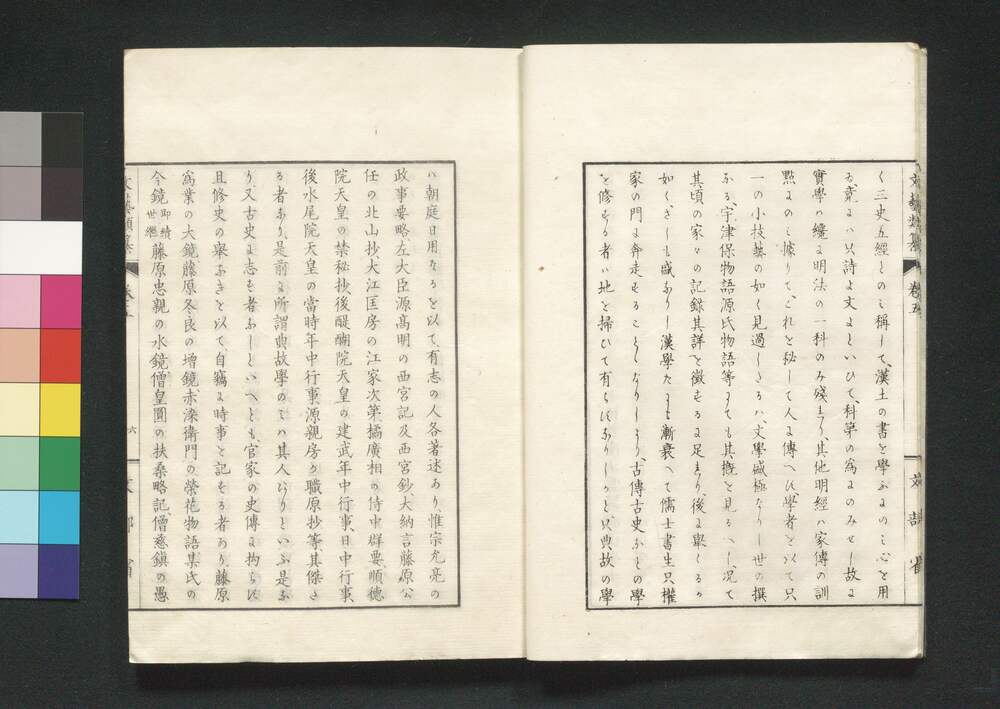 文藝類纂 卷五 文部省
く三史五經とのミ稱して、漢土の書を學ふよのミ心を用
ゐ、竟にハ只詩よ文よといひて、科第の爲よのみせし故に
實學ハ纔に明法の一科のみ殘まり、其他明經ハ家傳の訓
點よのミ據りて、これを秘して人に傳へひ、學者を以て只
一の小技藝の如く見過しきるハ、文學盛極なりし世の撰
ふる、宇津保物語源氏物語等よても其概を見るへし、况て
其頃の家々の記録其詳を徵もるに足まり、後に擧くるか
如くざしも盛ふりし漢學たよ漸衰へて儒士書生只權
家の門よ奔走もることゝなりしより、古傳古史ふとの學
を修むる者ハ地を掃ひて有らにふりしかと、只典故の學
ハ朝庭日用なるを以て、有志の人各著述あり、惟宗允亮の
政事要略左大臣源高明の西宮記及西宮鈔大納言藤原公
任の北山抄、大江匡房の江家次第橘廣相の侍中群要、順德
院天皇の禁秘抄、後醍醐院天皇の建武年中行事、日中行事、
後水尾院天皇の當時年中行事源親房の職原抄等其傑き
る者あり、是前に所謂典故學のミハ其人ありといふ是ふ
り、又古史に志も者ふしといへとも、官家の史傳に拘らに
且修史の擧ふきを以て、自竊に時事を記もる者あり藤原
爲業の大鏡、藤原冬良の增鏡、赤染衞門の榮花物語某氏の
今鏡 即續世繼 藤原忠親の水鏡、僧皇圓の扶桑略記、僧慈鎭の愚
文藝類纂 卷五 六 文部省